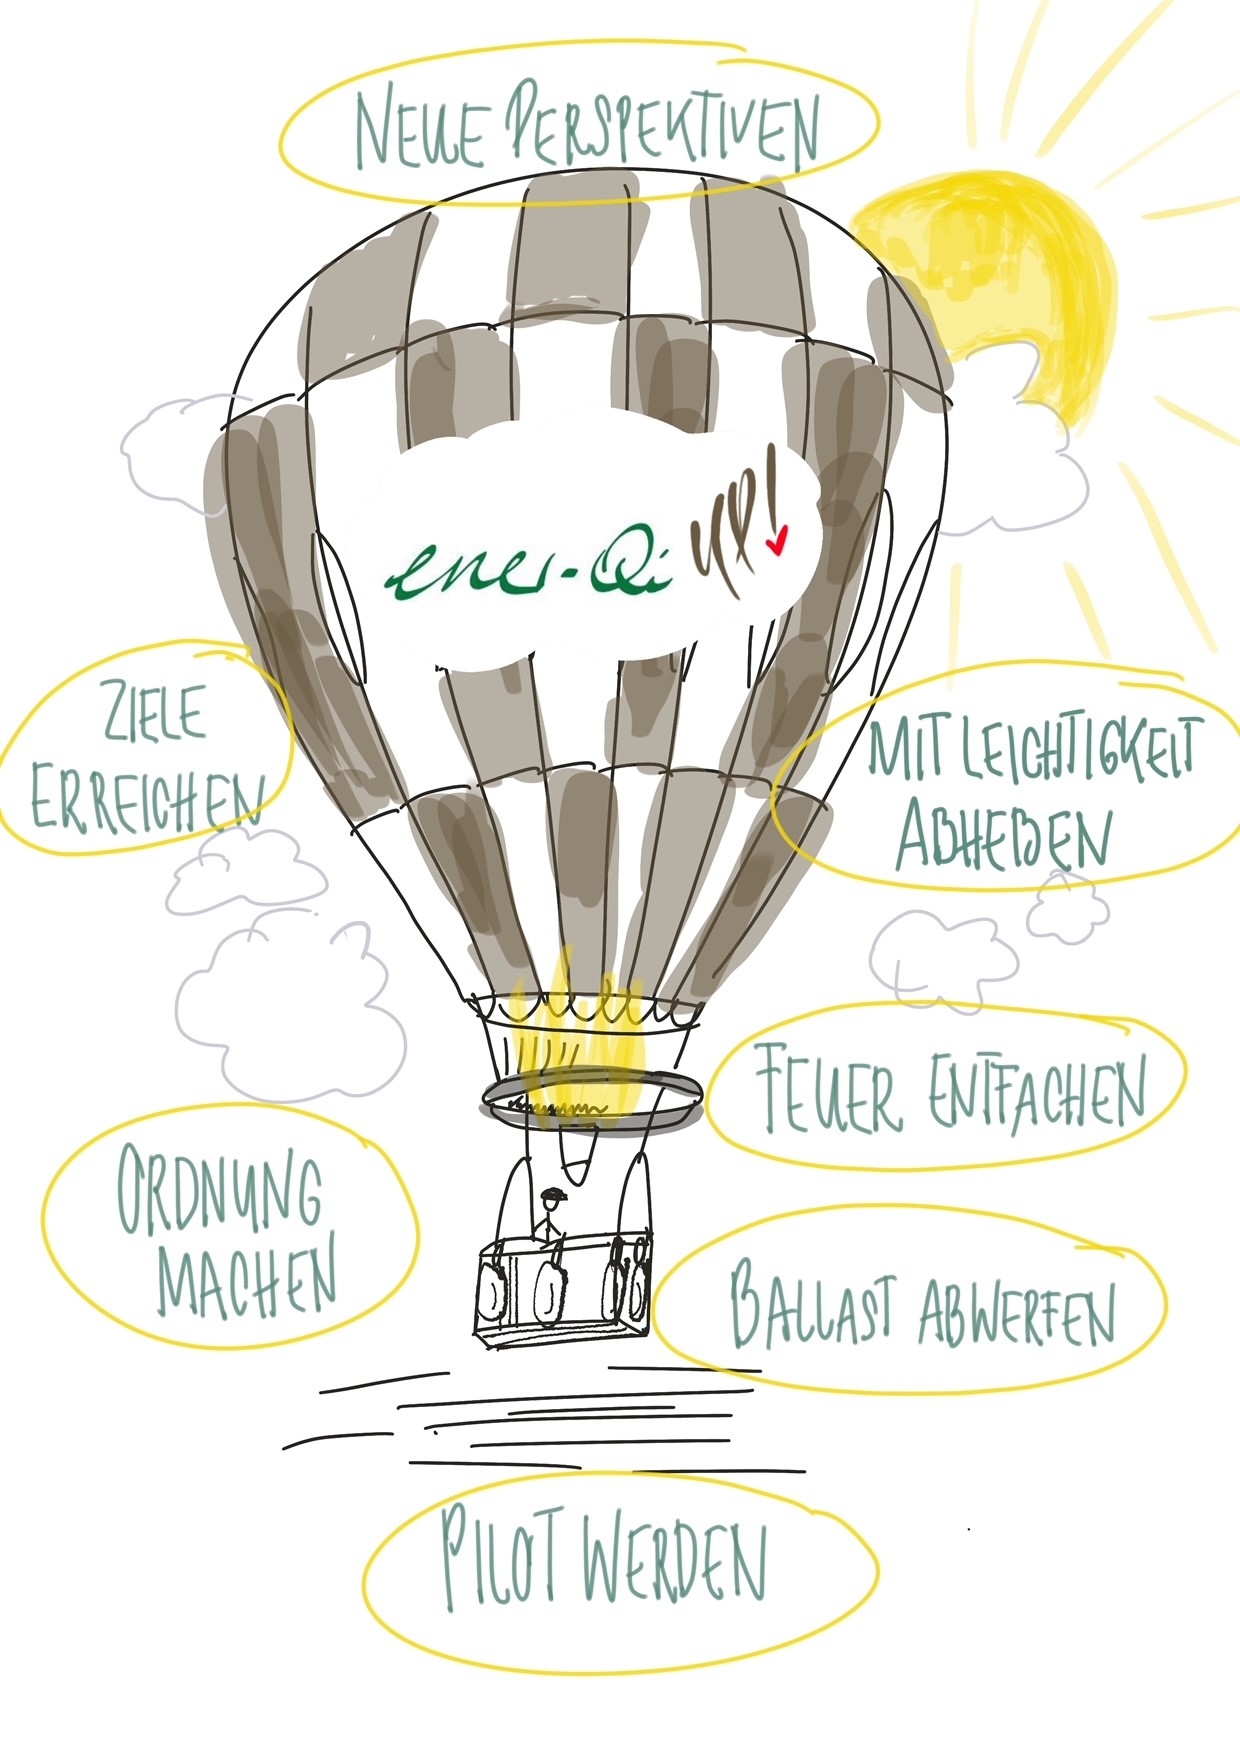 NEUE PERSPEKTIVEN
ener-Qi UP!
ZIELE
ERREICHEN
MIT LEICHTIGKEIT
ABHEBEN
FEUER ENTFACHEN
ORDNUNG
MACHEN
BALLAST ABWERFEN
PILOT WERDEN